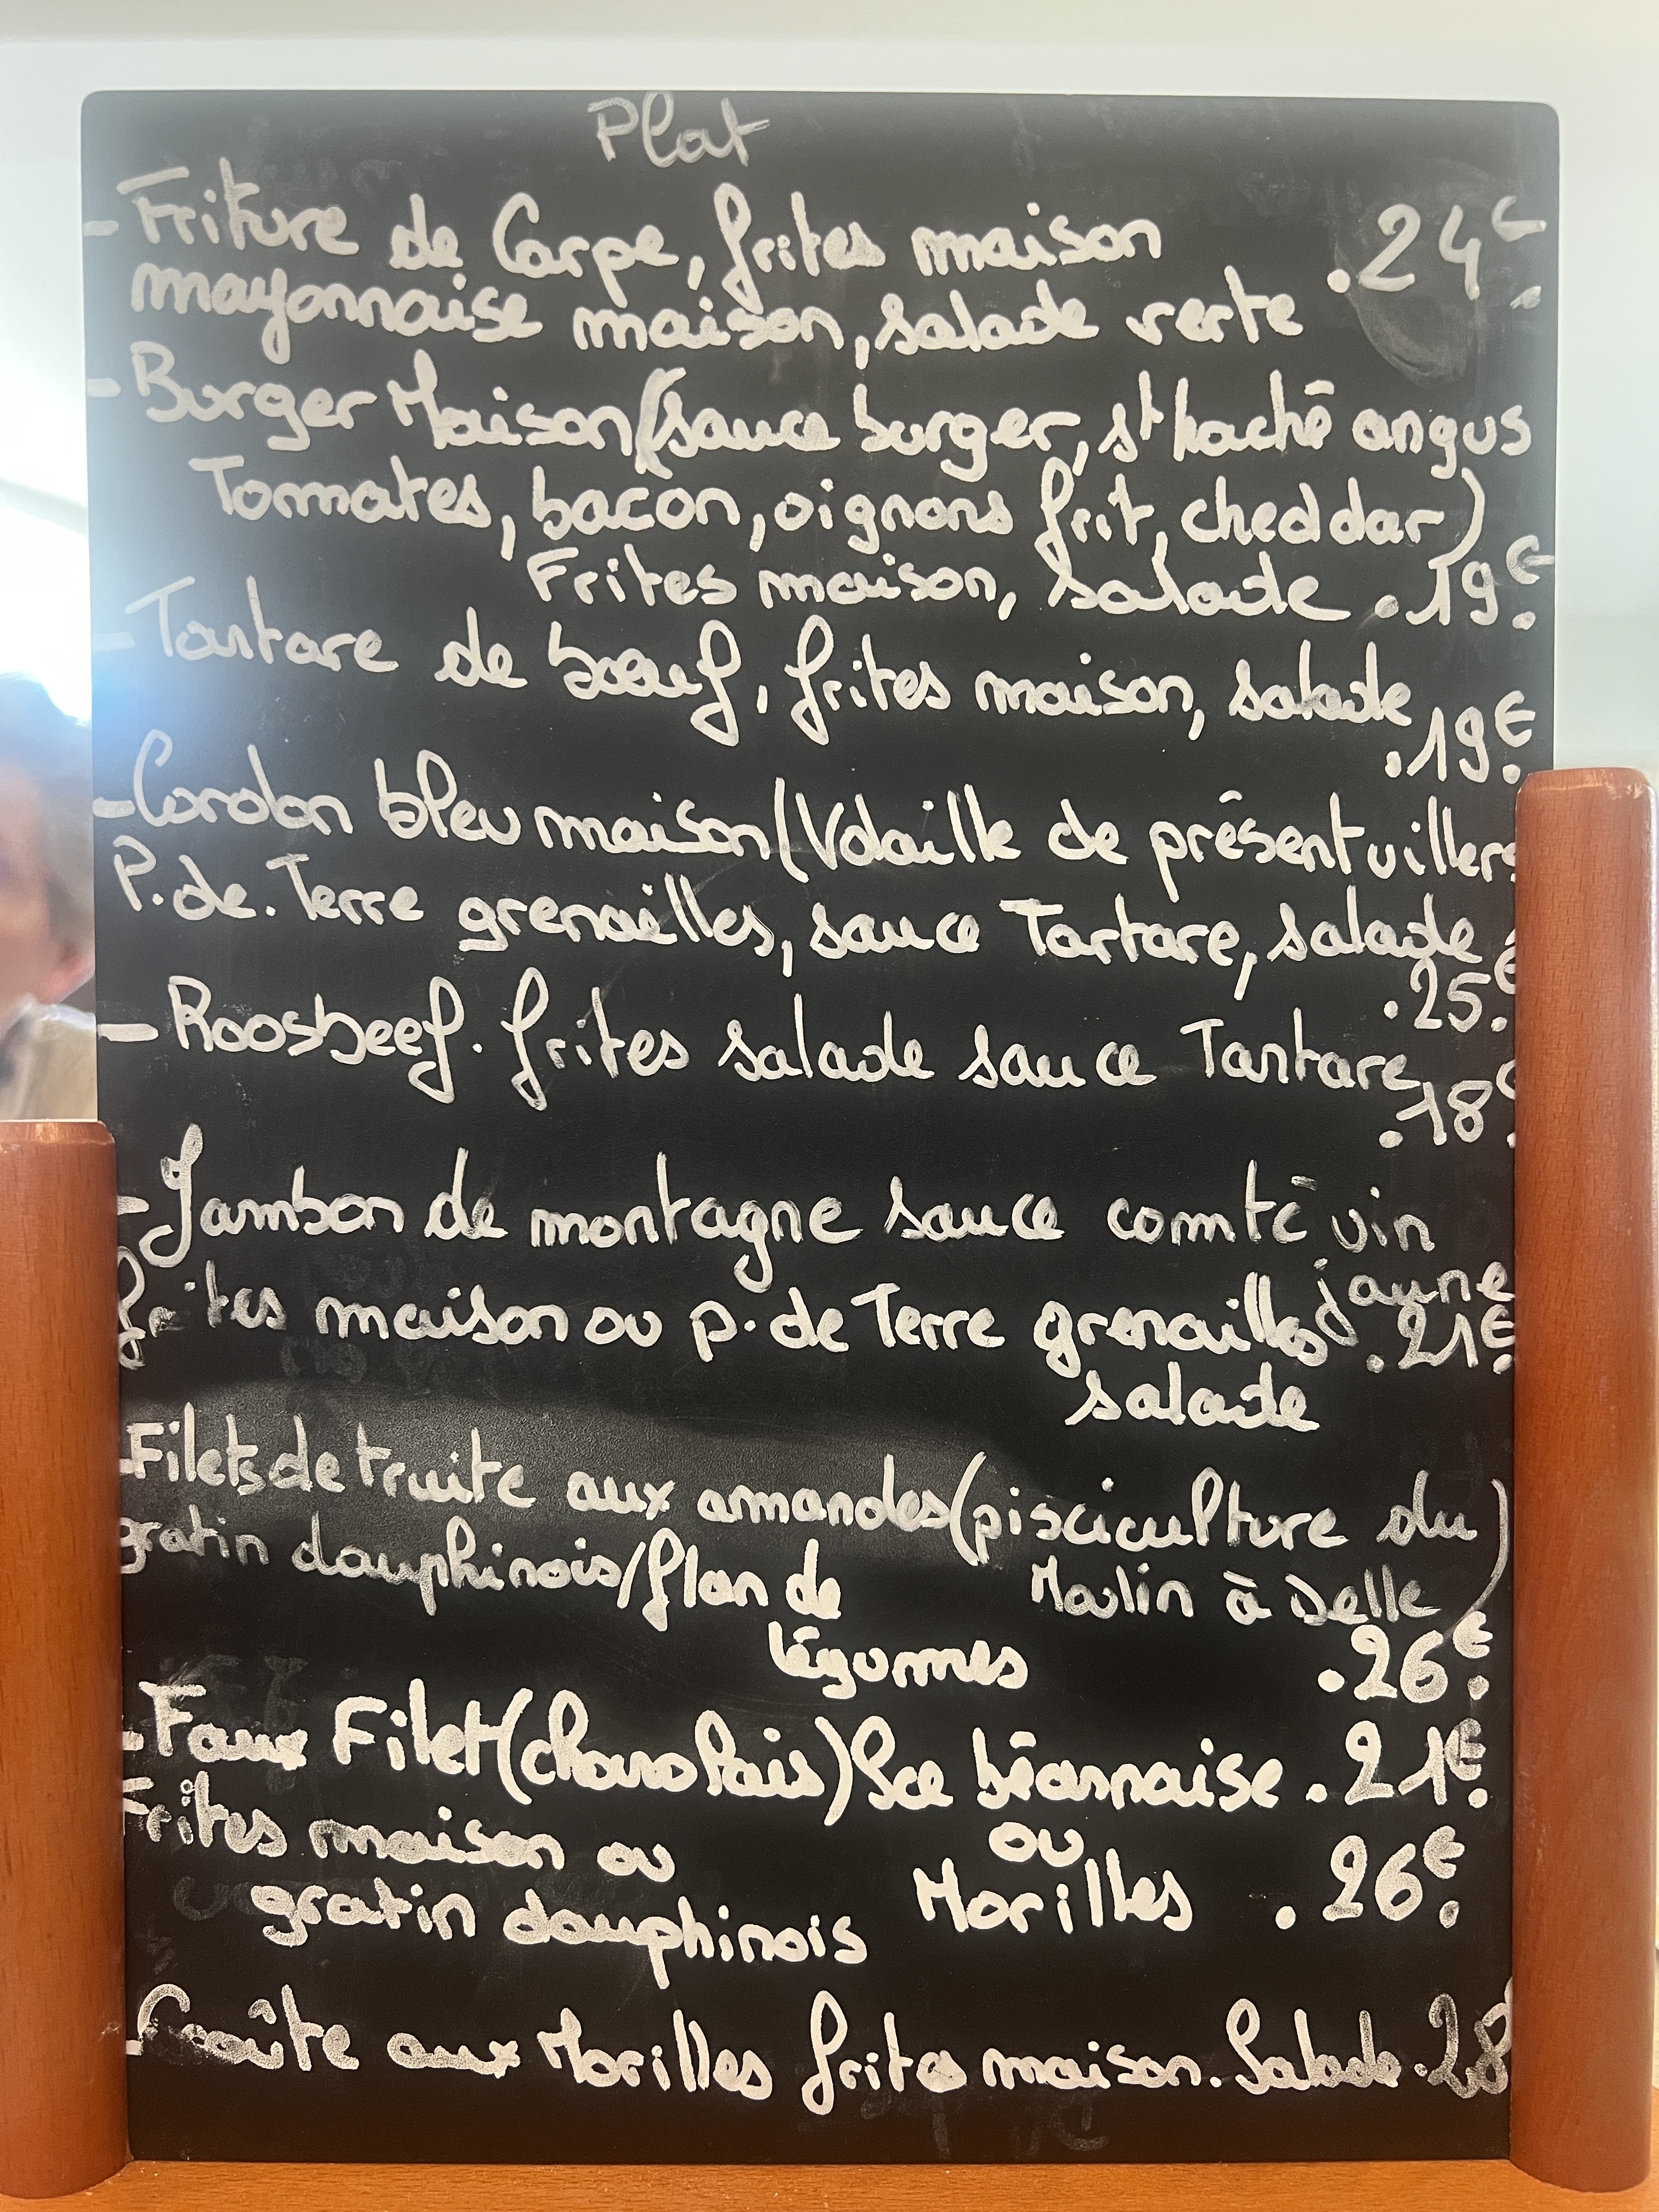 Plat
- Friture de Carpe, frites maison .24€.
mayonnaise maison, salade verte
- Burger Maison (sauce burger, st haché angus
Tomates, bacon, oignons frit, cheddar)
Frites maison, salade .19€.
- Tartare de bœuf, frites maison, salade
.19€.
- Cordon bleu maison (Volaille de présentvillers
P.de.Terre grenailles, sauce Tartare, salade
.25€.
- Roosbeef. frites salade sauce Tartare
.18€.
- Jambon de montagne sauce comté vin
jaune
frites maison ou p.de Terre grenailles .21€.
salade
- Filets de truite aux amandes (pisciculture du
Moulin à Delle)
gratin dauphinois/flan de
légumes .26€.
- Faux Filet (charolais) Sce béarnaise .21€.
Frites maison ou
ou
gratin dauphinois Morilles .26€.
- Croûte aux Morilles frites maison. Salade .28